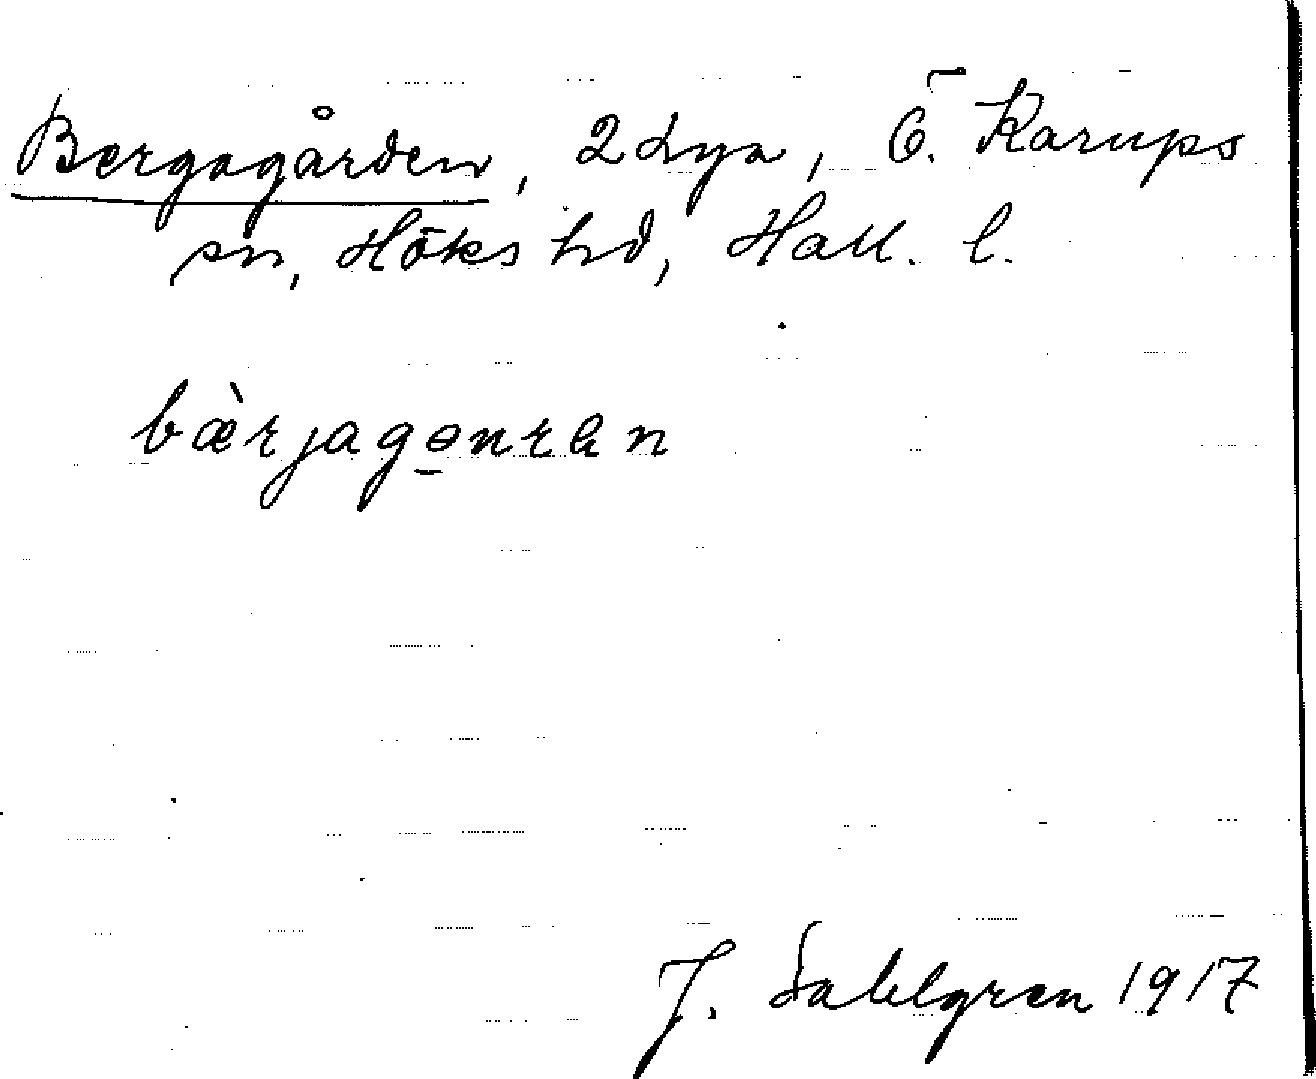 Bergagården, 2 Lya, Ö. Karups
sn, Höks hd, Hall. l.
bæ̀rjagɵ̠nrən
J. Sahlgren 1917